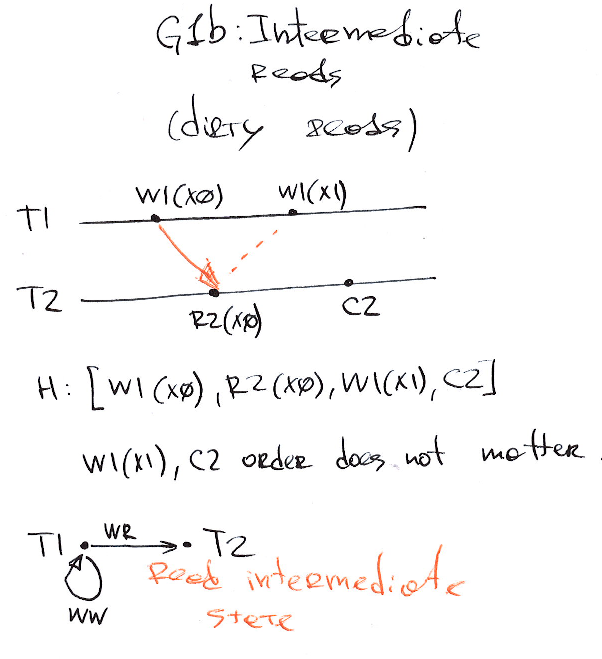 G1b: Intermediate
Reads
(dirty reads)
W1(x0) W1(x1)
T1
T2
R2(x0) C2
H: [W1(x0), R2(x0), W1(x1), C2]
W1(x1), C2 order does not matter.
T1 WR T2
WW
Read intermediate
state